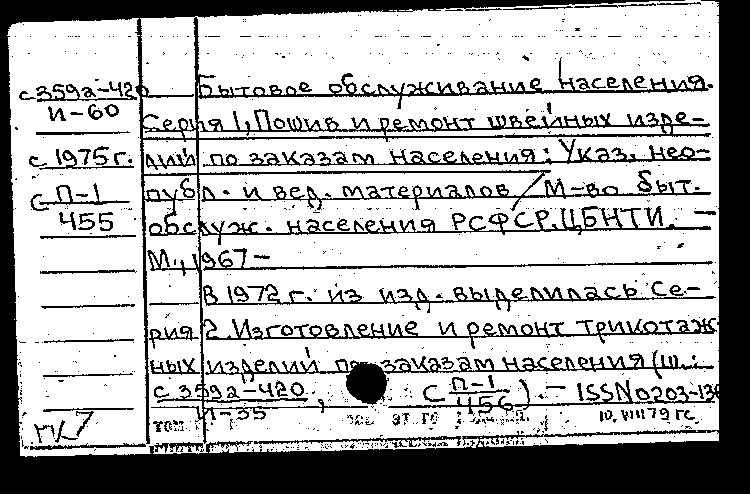 с 359а-420
И-60
с 1975 г.
С П-1
455
Бытовое обслуживание населения.
Серия 1, Пошив и ремонт швейных изде-
лий по заказам населения: Указ. нео-
публ. и вед. материалов / М-во быт.
обслуж. населения РСФСР. ЦБНТИ. —
М., 1967 —
В 1972 г. из изд. выделилась Се-
рия 2. Изготовление и ремонт трикотаж
ных изделий по заказам населения (Ш.:
с 359а-420
И-35
, С П-1
456
). — ISSN 0203-136
ГК7
10. VIII 79 гс